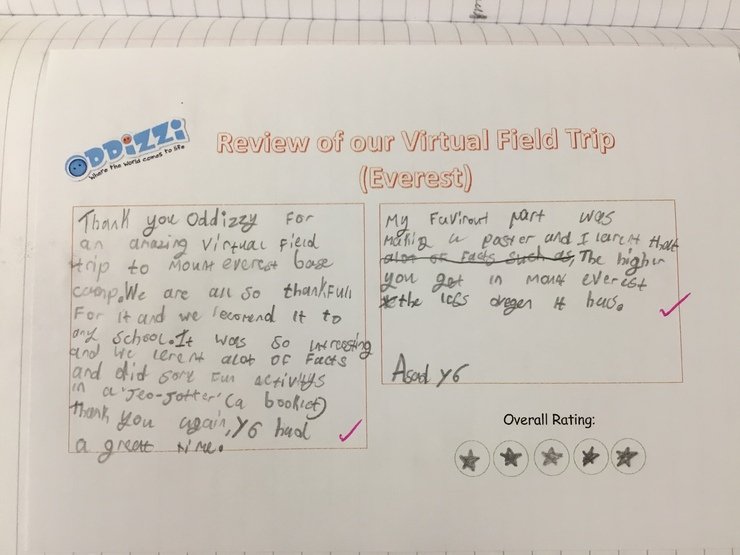 ODDiZZi
Where the world comes to life
Review of our Virtual Field Trip
(Everest)
Thank you Oddizzy For
an amazing Virtual Field
trip to Mount everest base
camp. We are all so thankfull
For it and we recorend it to
any school. It was so intressing
and we lerent alot of Facts
and did some Fun activitys
in a 'Jeo-Jotter' (a booklet)
Thank you again, Y6 had
a great time.
My Favirout part was
making a poster and I larent that
alot of facts such as, The higher
you get in mount everest
the less oxegen it has.
Asad Y6
Overall Rating: